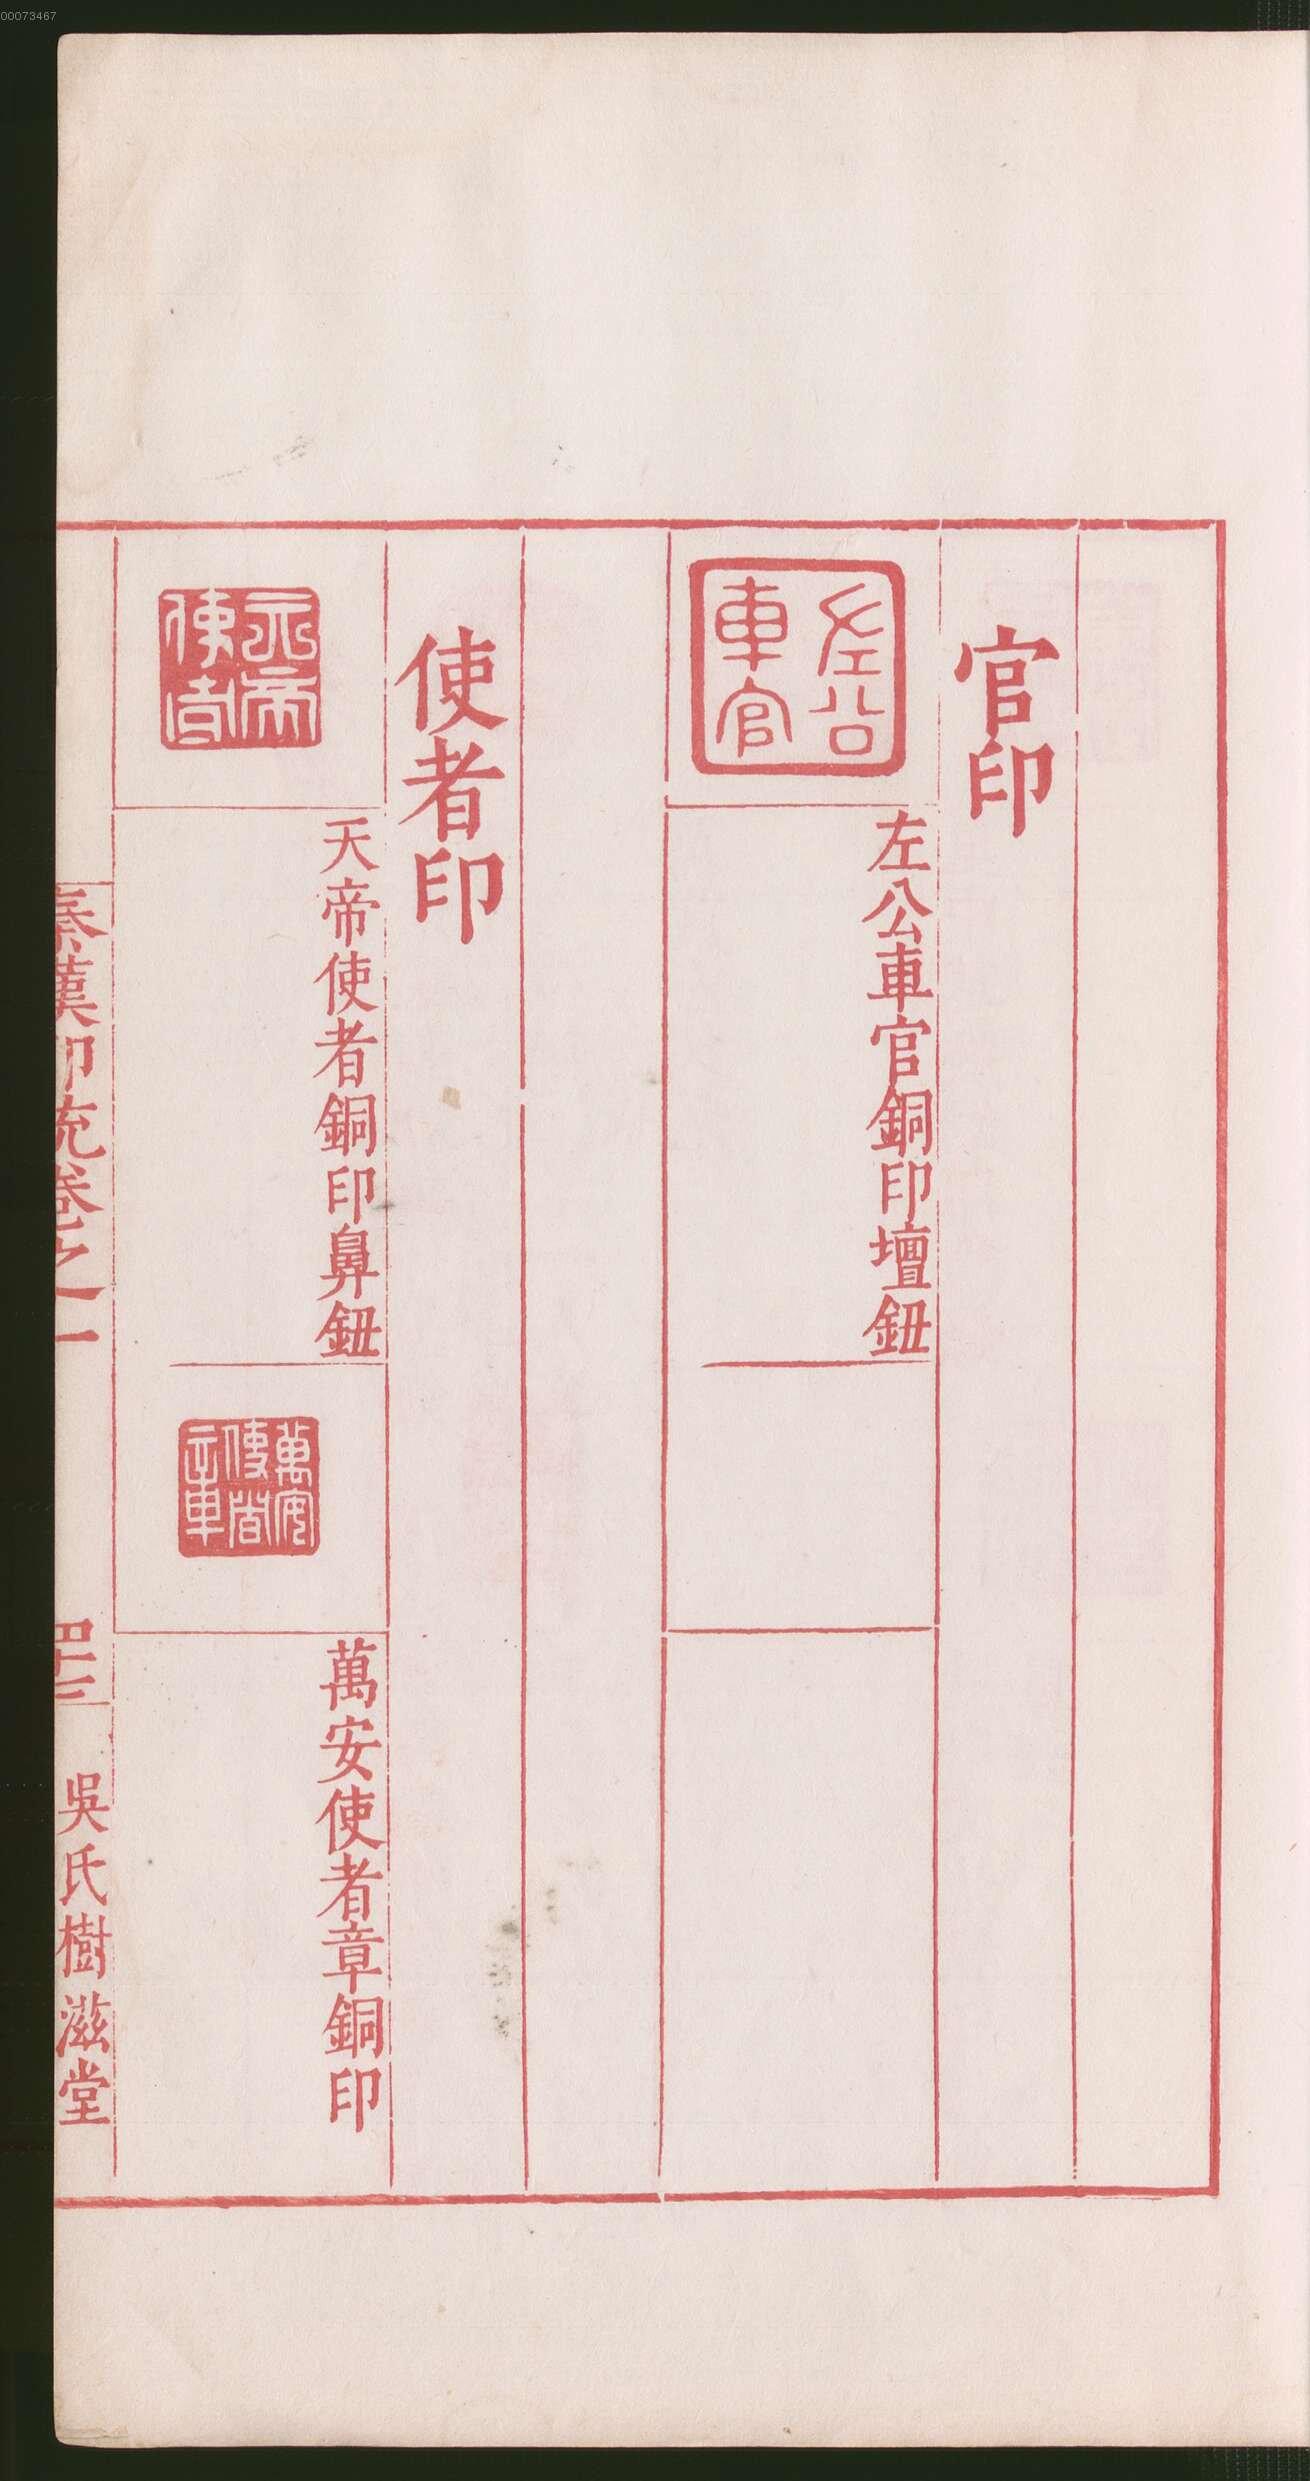 00073467
官印
左公
車官
左公車官銅印壇鈕
使者印
天帝
使者
天帝使者銅印鼻鈕
萬安
使者
章
萬安使者章銅印
秦漢印統卷之一
四十三
吳氏樹滋堂